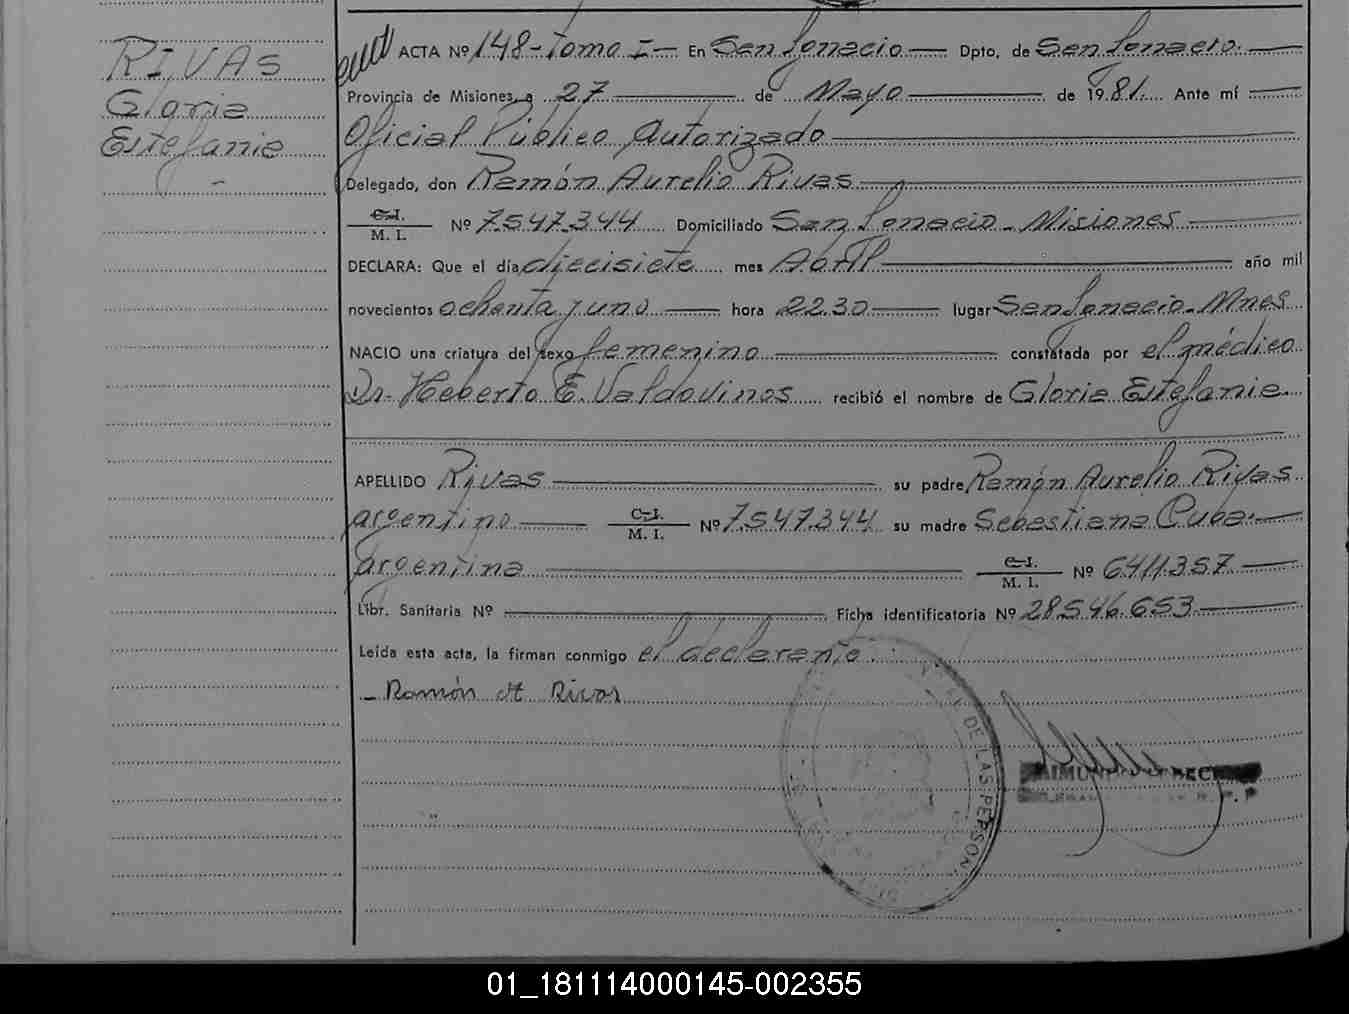 RIVAS
Gloria
Estefanie
ACTA Nº 148-Tomo I- En San Ignacio Dpto. de San Ignacio.
Provincia de Misiones, a 27 de Mayo de 1981. Ante mí
Oficial Público Autorizado
Delegado, don Ramón Aurelio Rivas
C.I.
M. I. Nº 7.547.344 Domiciliado San Ignacio - Misiones
DECLARA: Que el día diecisiete mes Abril año mil
novecientos ochenta y uno hora 22.30 lugar San Ignacio - Mnes
NACIO una criatura del sexo femenino constatada por el médico
Dr. Heberto E. Valdovinos recibió el nombre de Gloria Estefanie
APELLIDO Rivas su padre Ramón Aurelio Rivas
argentino C.I. M. I. Nº 7.547.344 su madre Sebastiana Cuba.
argentina C.I. M. I. Nº 6411.357
Libr. Sanitaria Nº Ficha identificatoria Nº 28.546.653
Leída esta acta, la firman conmigo el declarante
- Ramón A Rivas
DE LAS PERSON
01_181114000145-002355